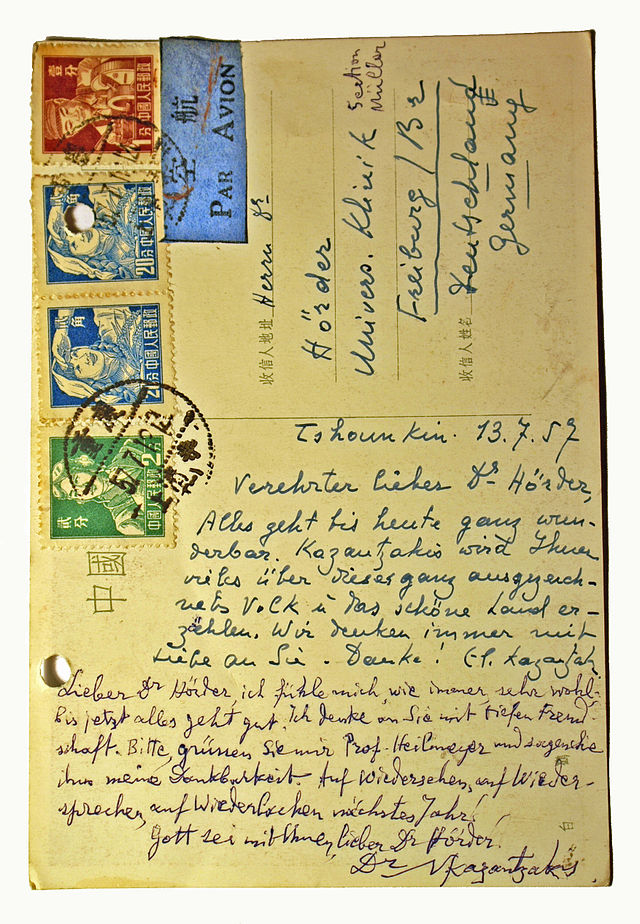 壹分
1分 中國人民郵政
航空
PAR AVION
贰角
20分 中國人民郵政
贰角
20分 中國人民郵政
贰分
2分 中國人民郵政
中國
收信人地址
Herrn Dr
Hörder
Univers. Klinik Section Müller
Freiburg / Br
Deutschland
Germany
收信人姓名
Tshounkin. 13.7.57
Verehrter lieber Dr Hörder,
Alles geht bis heute ganz wun-
derbar. Kazantzakis wird Ihnen
vieles über dieses ganz ausgezeich-
nets Volk u das schöne Land er-
zählen. Wir denken immer mit
Liebe an Sie. Danke! El. Kazantzaki
Lieber Dr Hörder, ich fühle mich, wie immer, sehr wohl;
bis jetzt alles geht gut. Ich denke an Sie mit tiefen Freund-
schaft. Bitte, grüssen Sie mir Prof. Heilmeyer und sagen Sie
ihm meine Dankbarkeit. Auf Wiedersehen, auf Wieder-
sprechen, auf Wiederlachen nächstes Jahr!
Gott sei mit Ihnen, lieber Dr Hörder!
Dr N Kazantzakis